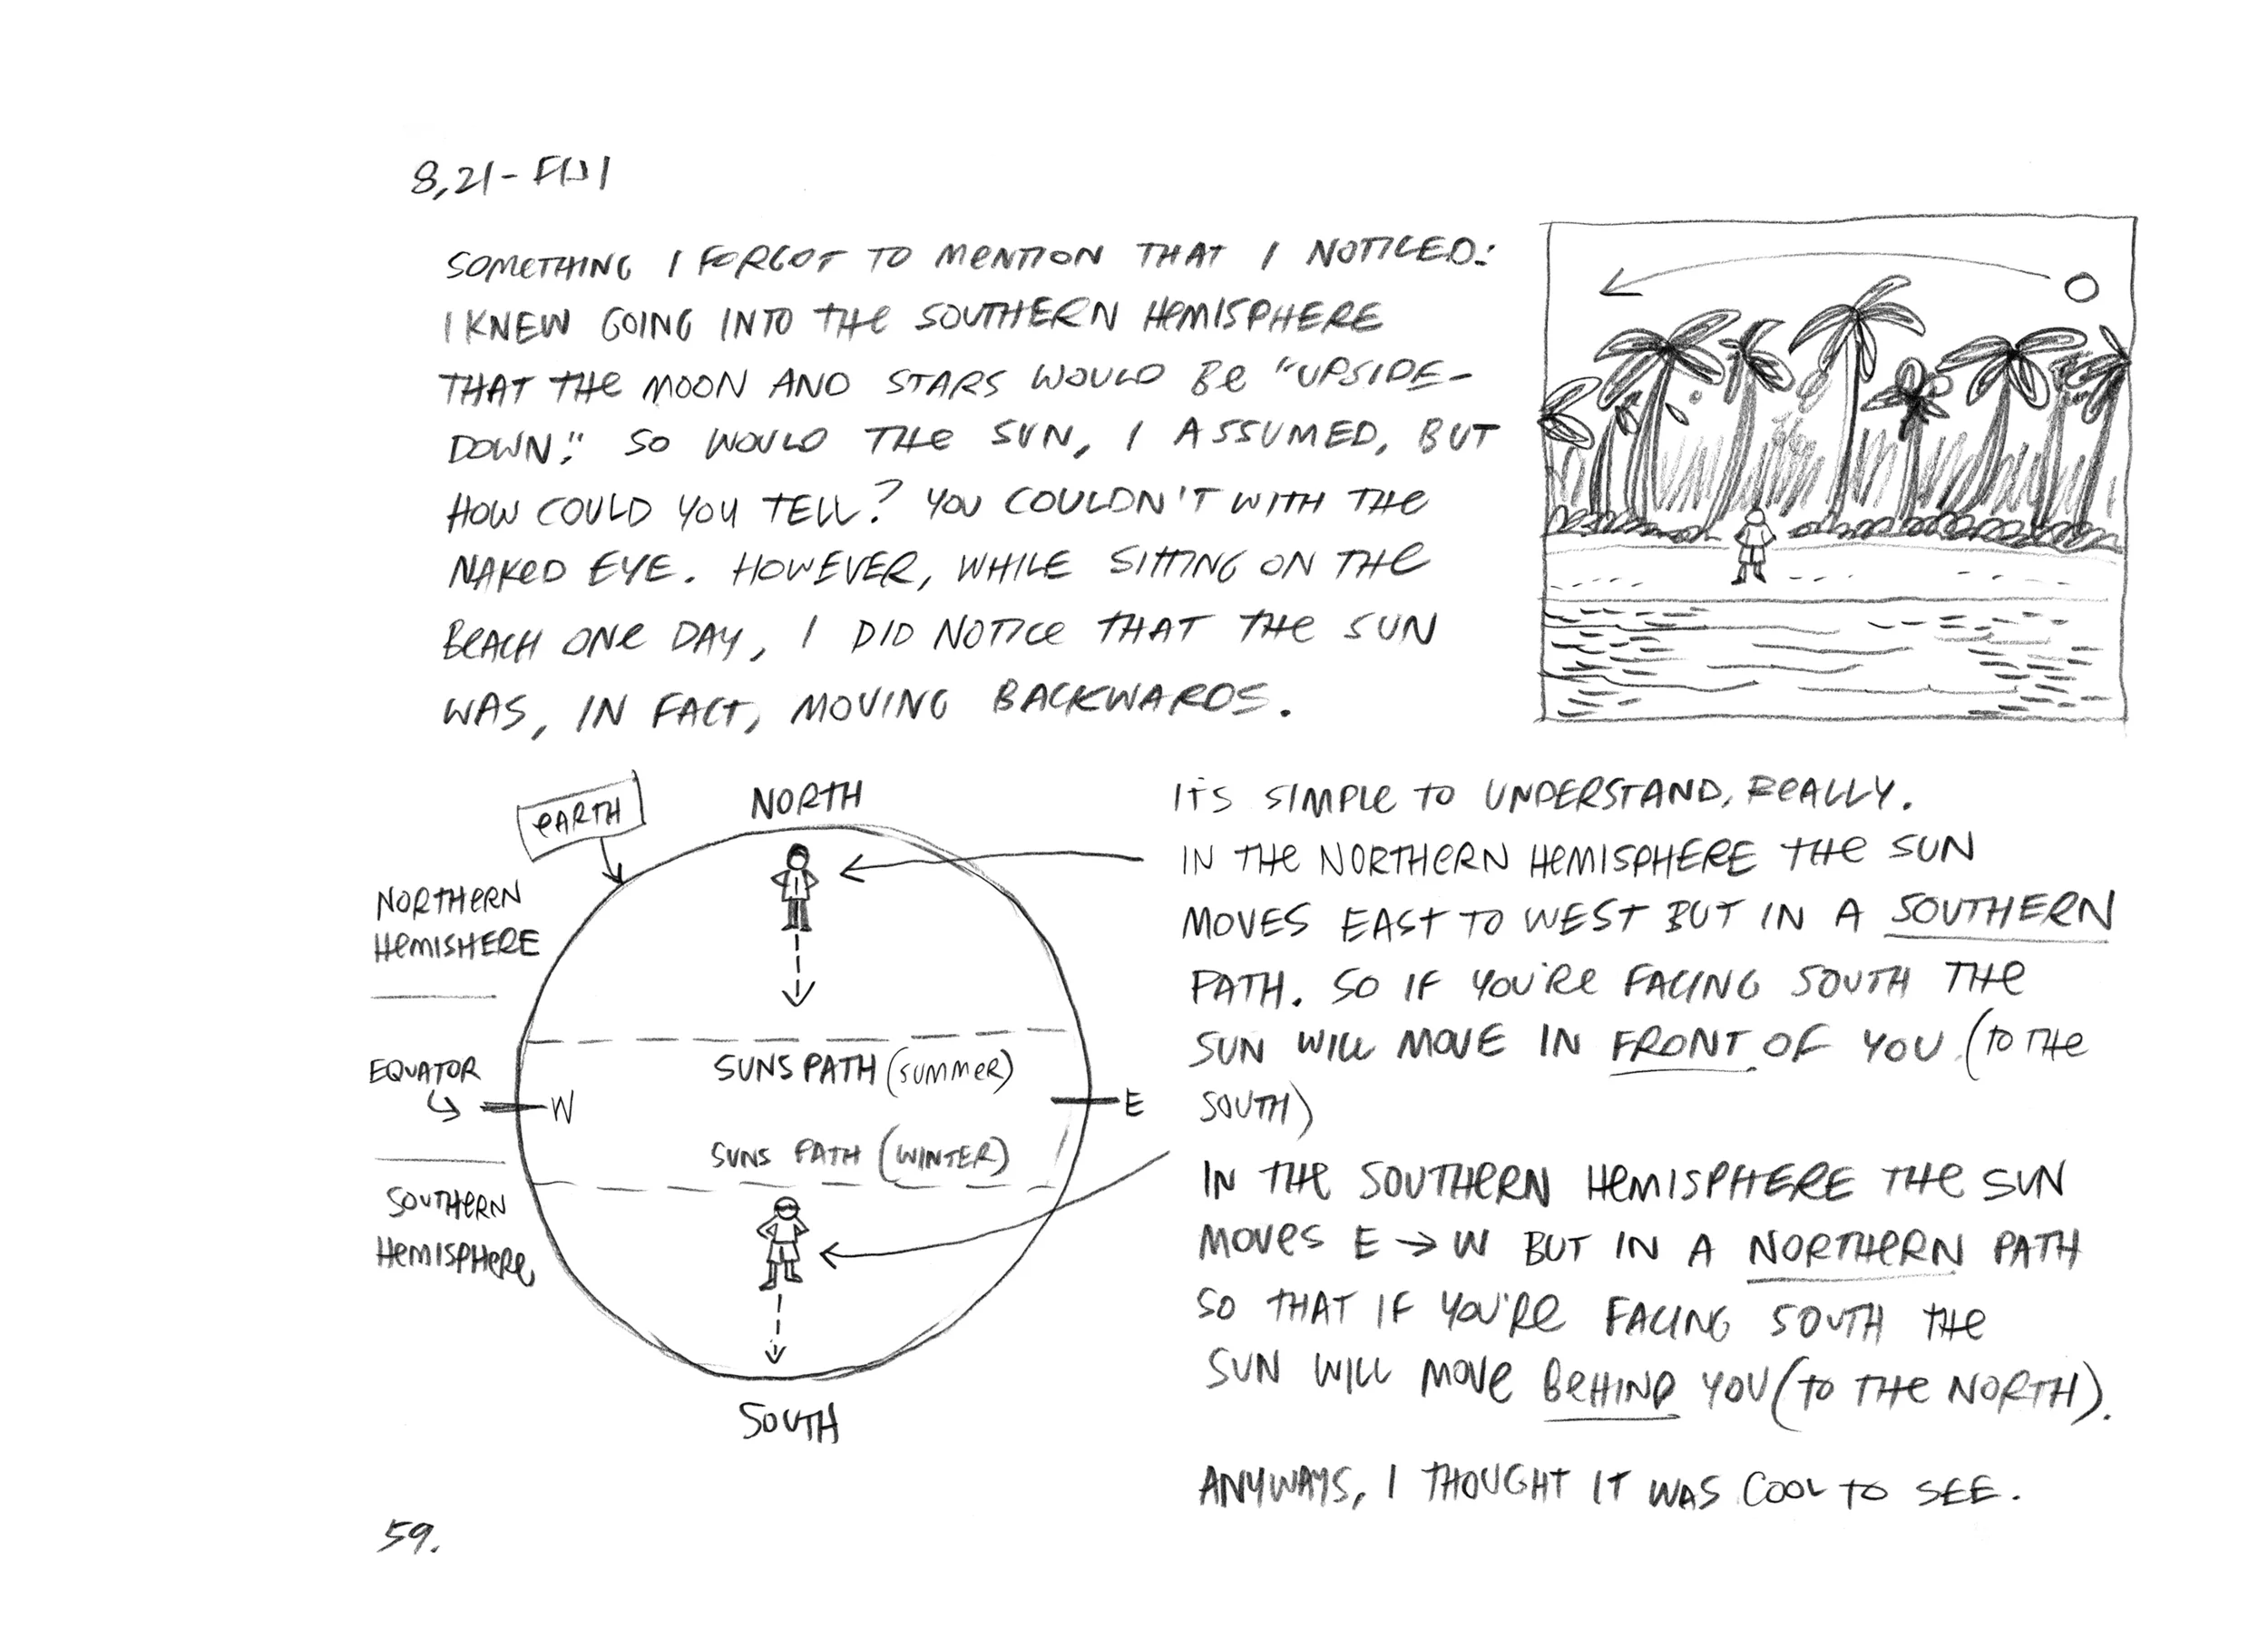 8,21- FIJI
SOMETHING I FORGOT TO MENTION THAT I NOTICED:
I KNEW GOING INTO THE SOUTHERN HEMISPHERE
THAT THE MOON AND STARS WOULD BE "UPSIDE-
DOWN." SO WOULD THE SUN, I ASSUMED, BUT
HOW COULD YOU TELL? YOU COULDN'T WITH THE
NAKED EYE. HOWEVER, WHILE SITTING ON THE
BEACH ONE DAY, I DID NOTICE THAT THE SUN
WAS, IN FACT, MOVING BACKWARDS.
EARTH
NORTH
NORTHERN
HEMISHERE
EQUATOR
W
E
SUNS PATH (SUMMER)
SUNS PATH (WINTER)
SOUTHERN
HEMISPHERE
SOUTH
ITS SIMPLE TO UNDERSTAND, REALLY.
IN THE NORTHERN HEMISPHERE THE SUN
MOVES EAST TO WEST BUT IN A SOUTHERN
PATH. SO IF YOU'RE FACING SOUTH THE
SUN WILL MOVE IN FRONT OF YOU (TO THE
SOUTH)
IN THE SOUTHERN HEMISPHERE THE SUN
MOVES E → W BUT IN A NORTHERN PATH
SO THAT IF YOU'RE FACING SOUTH THE
SUN WILL MOVE BEHIND YOU (TO THE NORTH).
ANYWAYS, I THOUGHT IT WAS COOL TO SEE.
59.